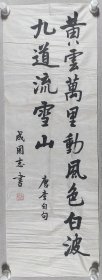 黄雲萬里動風色白波
九道流雪山
唐李白句
成国志書